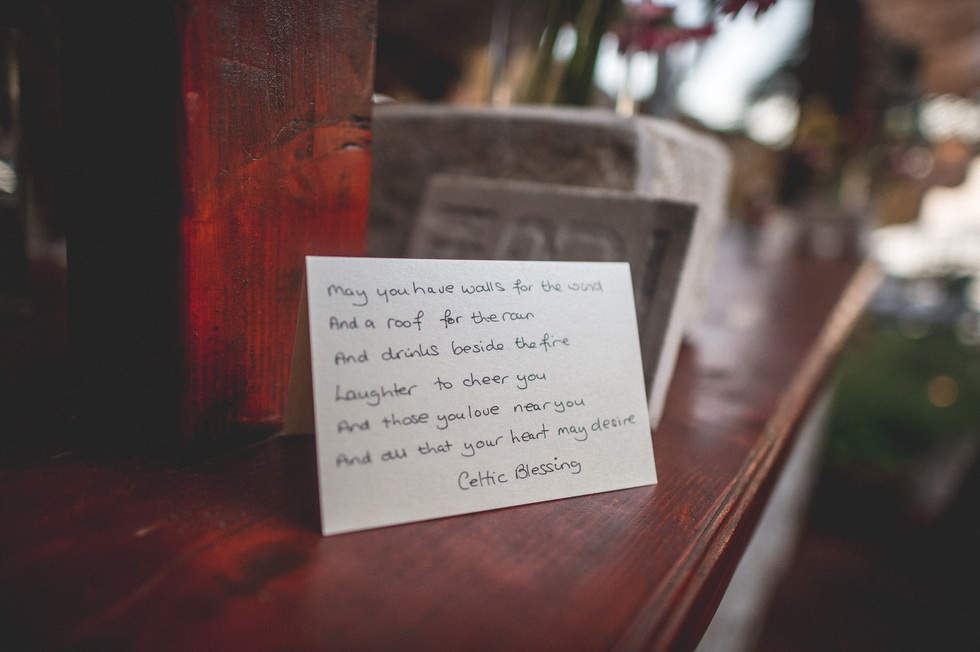 May you have walls for the wind
And a roof for the rain
And drinks beside the fire
Laughter to cheer you
And those you love near you
And all that your heart may desire
Celtic Blessing